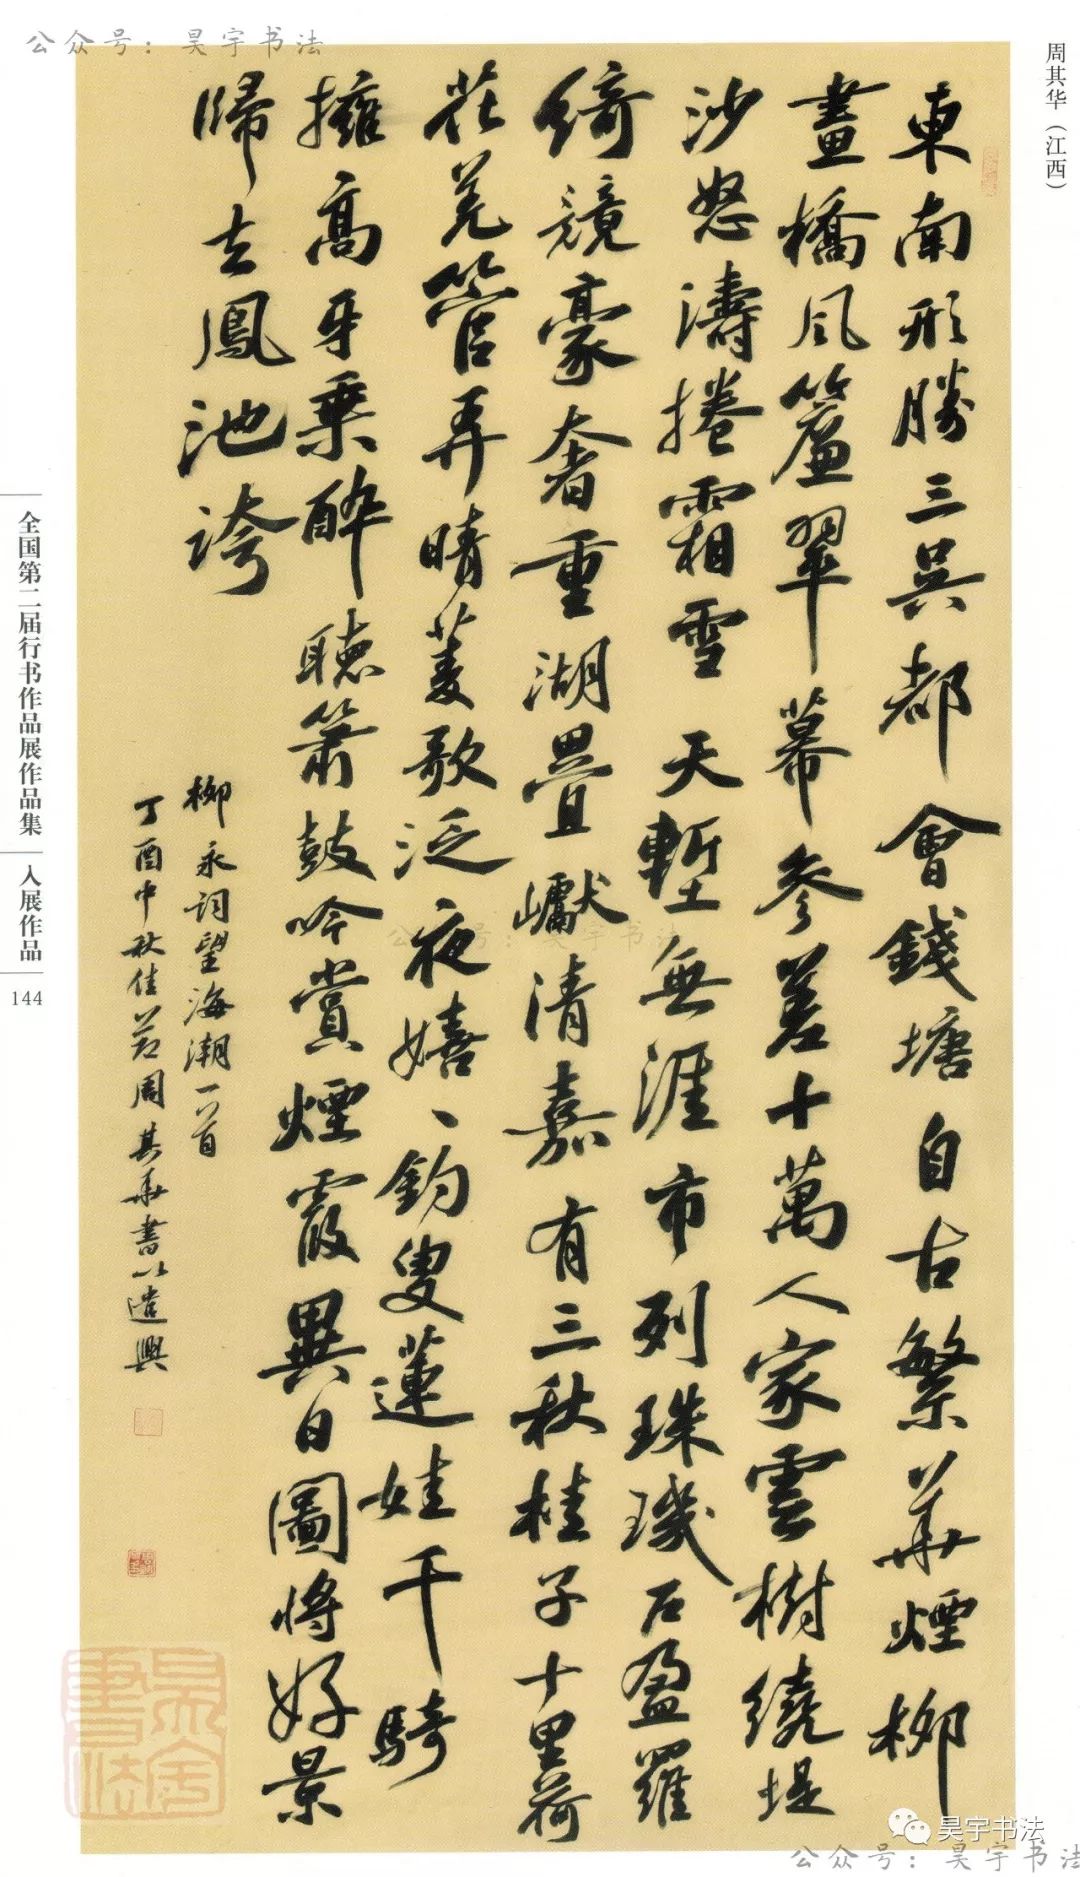 公众号：昊宇书法
周其华（江西）
東南形勝三吳都會錢塘自古繁華煙柳
畫橋風簾翠幕參差十萬人家雲樹繞堤
沙怒濤捲霜雪天塹無涯市列珠璣户盈羅
綺競豪奢重湖疊巘清嘉有三秋桂子十里荷
花羌管弄晴菱歌泛夜嬉、釣叟蓮娃千騎
擁高牙乘醉聽簫鼓吟賞煙霞異日圖將好景
歸去鳳池誇
柳永詞望海潮一首
丁酉中秋佳節周其華書以遣興
全国第二届行书作品展作品集
入展作品
144
公众号：昊宇书法
昊宇書法
昊宇书法
公众号：昊宇书法